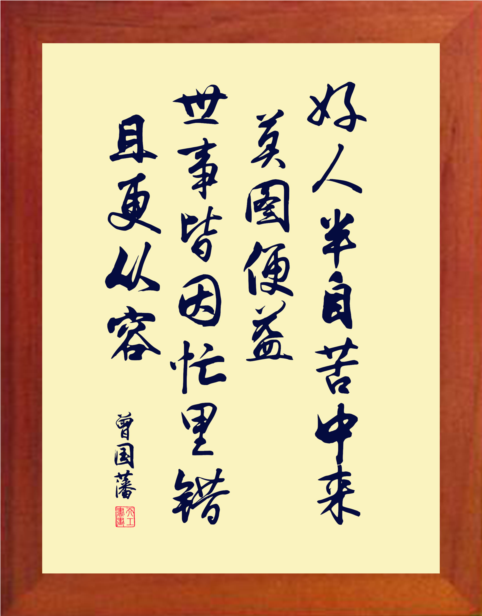 好人半自苦中来
莫图便益
世事皆因忙里错
且更从容
曾国藩